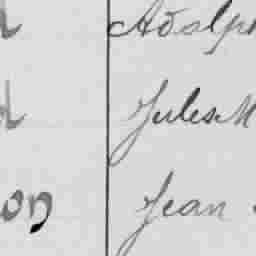 Adolph
Jules M
on Jean